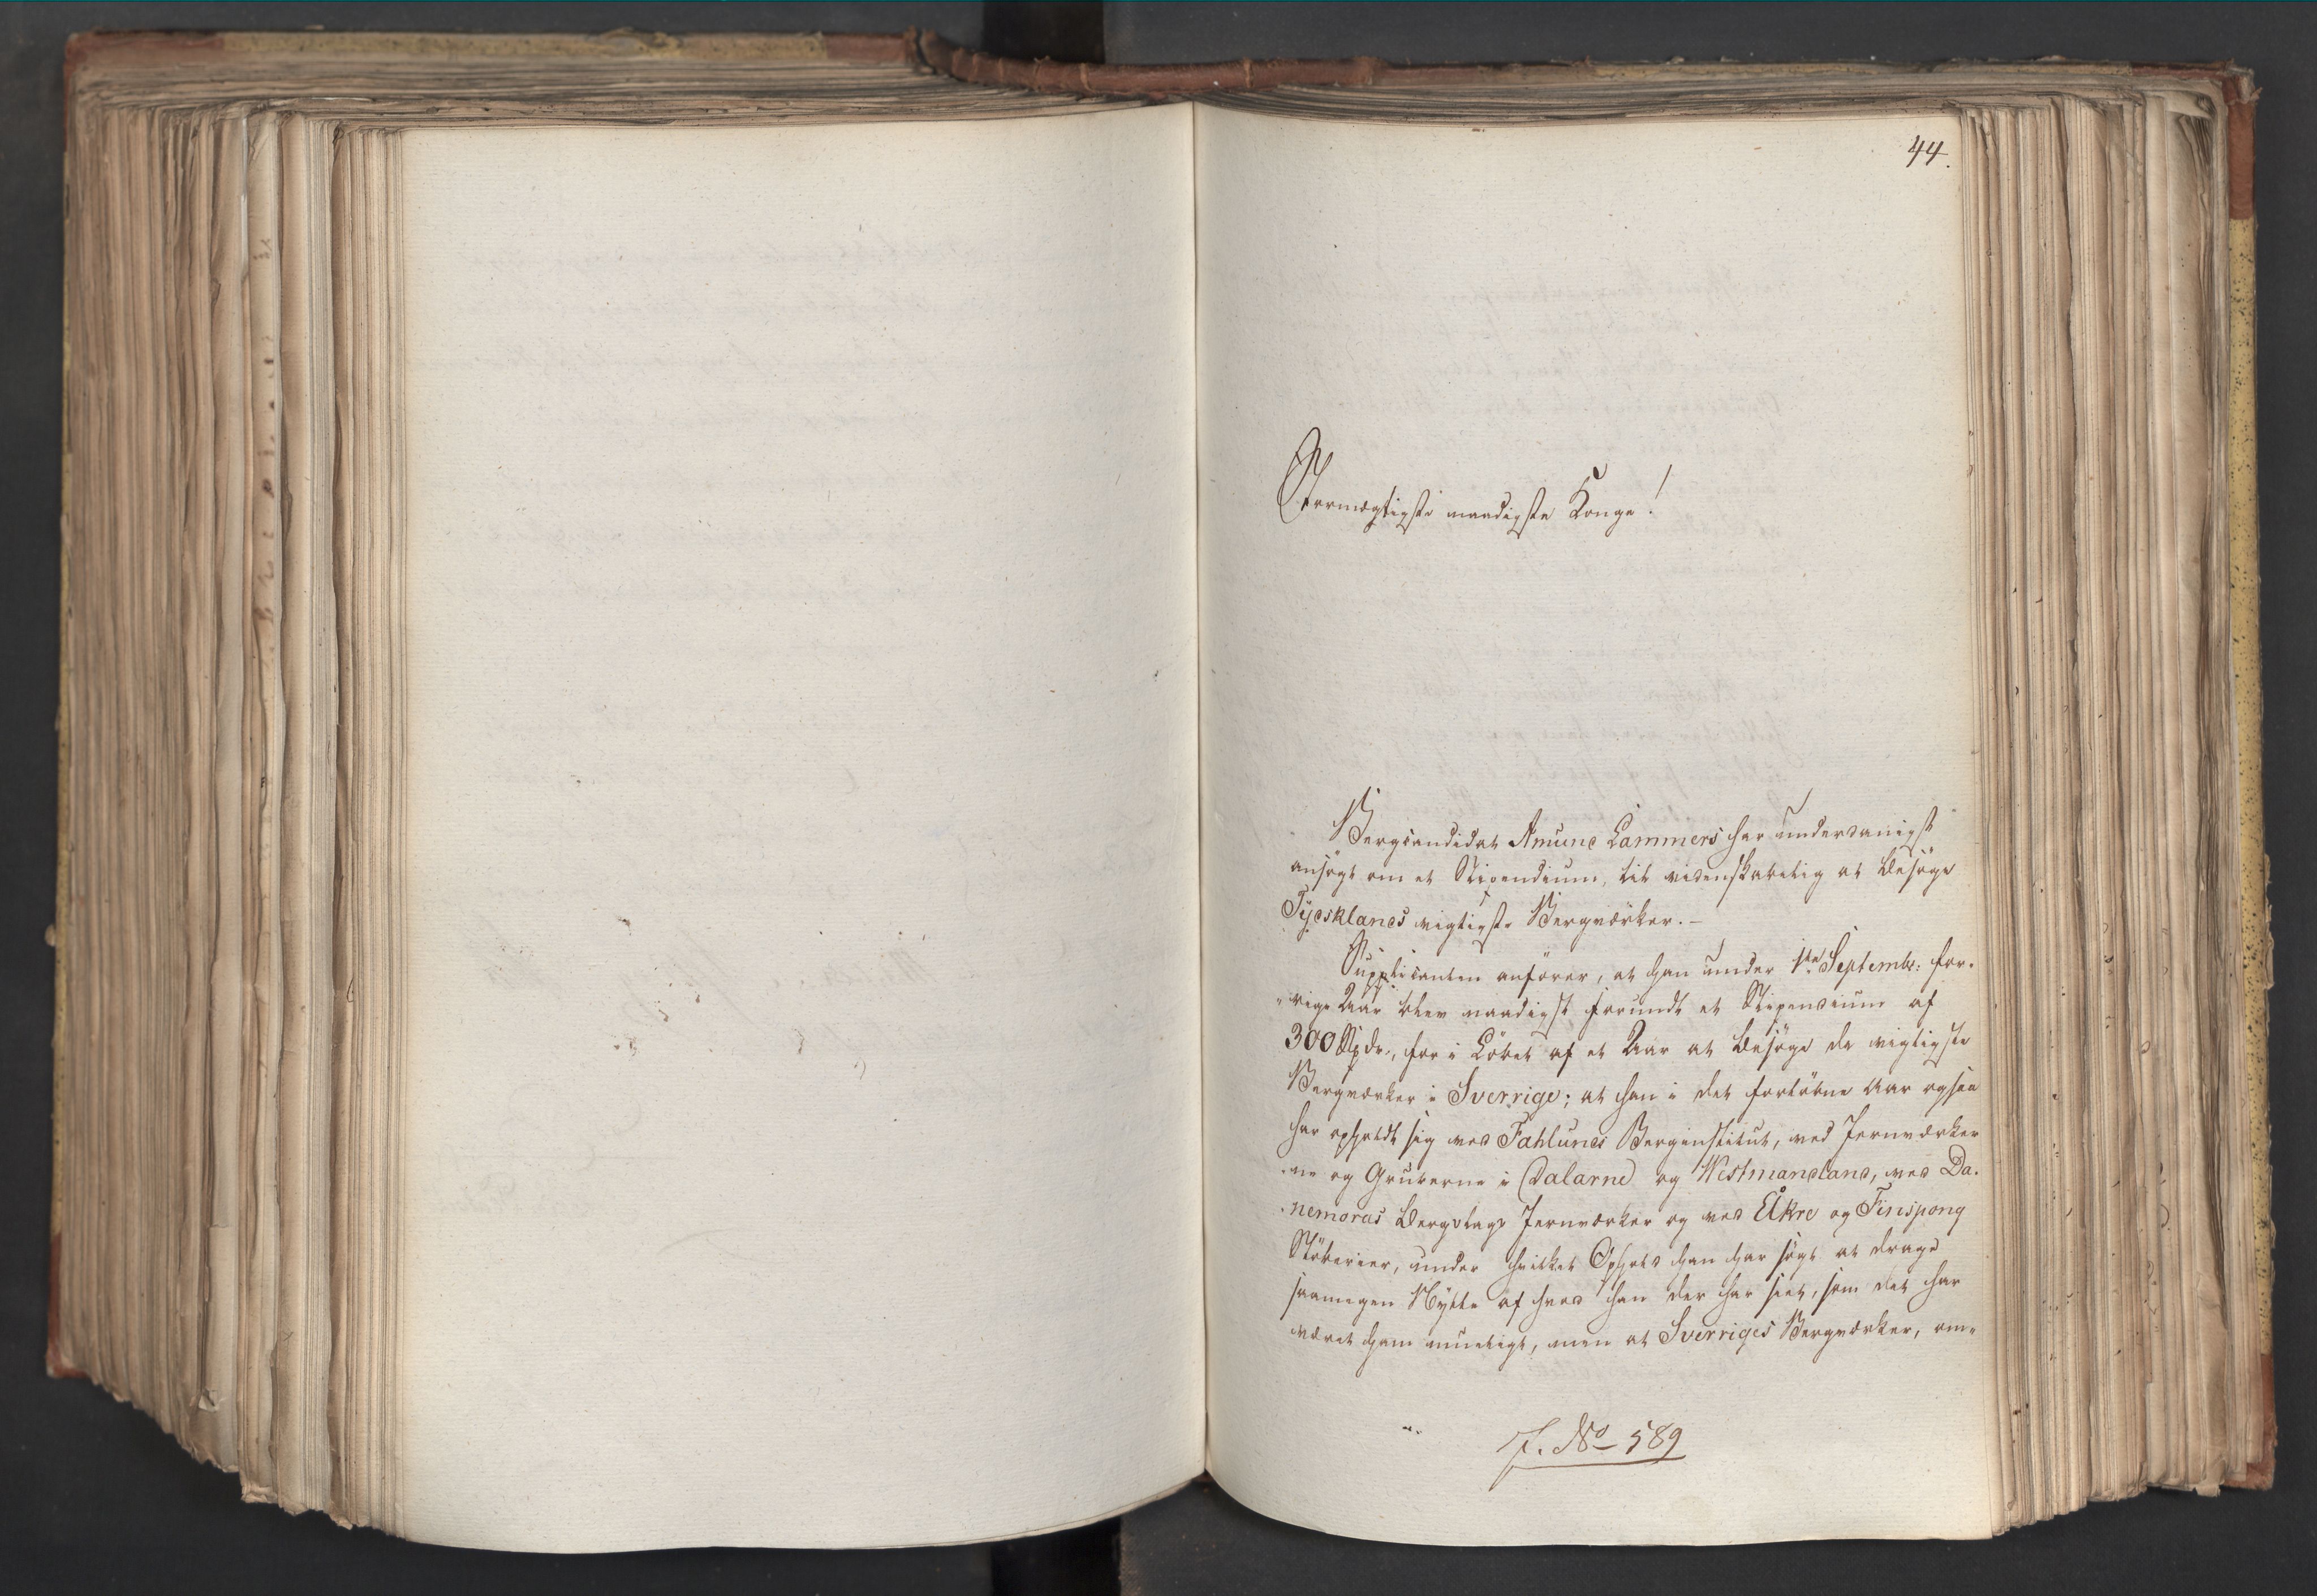 44.
Stormægtigste naadigste Konge!
Bergcandidat Amund Lammers har underdanigst
ansøgt om et Stipendium, til videnskabelig at besøge
Tydsklands vigtigste Bergværker. -
Supplicanten anfører, at han under 1ste Septembr: for-
"rige Aar blev naadigst forundt et Stipendium af
300 Spdr., for i Løbet af et Aar at besøge de vigtigste
Bergværker i Sverrige; at han i det forløbne Aar ogsaa
har opholdt sig ved Fahluns Berginstitut, ved Jernværker
-ne og Gruberne i Dalarne og Westmanland, ved Da-
-nemoras Bergslags Jernværker og ved Åkre og Finspong
Støberier, under hvilket Ophold han har søgt at drage
saamegen Nytte af hvad han der har seet, som det har
været ham mueligt, men at Sverriges Bergværker, om-
J. No 589